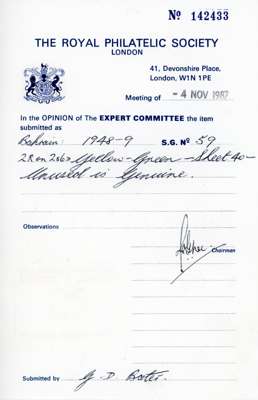 Nº 142433
THE ROYAL PHILATELIC SOCIETY
LONDON
41, Devonshire Place,
London, W1N 1PE
Meeting of - 4 NOV 1987
In the OPINION of The EXPERT COMMITTEE the item
submitted as
Bahrain 1948-9 S.G. Nº 59
2R on 2s6d Yellow-Green - Sheet 40 -
Unused is Genuine.
Observations
Chairman
Submitted by G. D.